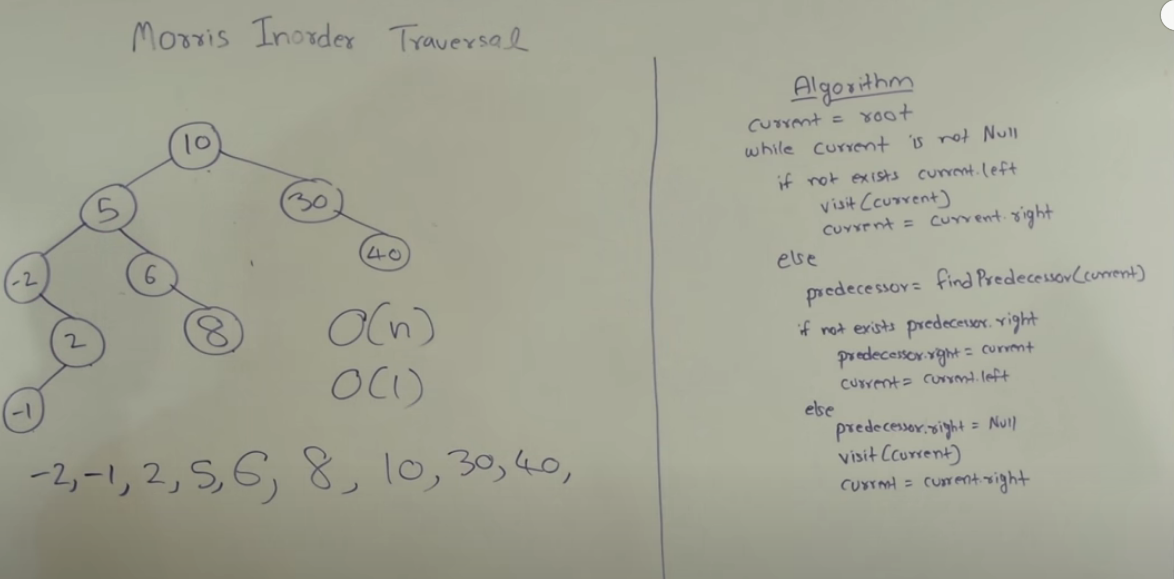 Morris Inorder Traversal
10
5
30
-2
6
40
2
8
-1
O(n)
O(1)
-2, -1, 2, 5, 6, 8, 10, 30, 40,
Algorithm
current = root
while current is not Null
if not exists current.left
visit(current)
current = current.right
else
predecessor = findPredecessor(current)
if not exists predecessor.right
predecessor.right = current
current = current.left
else
predecessor.right = Null
visit(current)
current = current.right